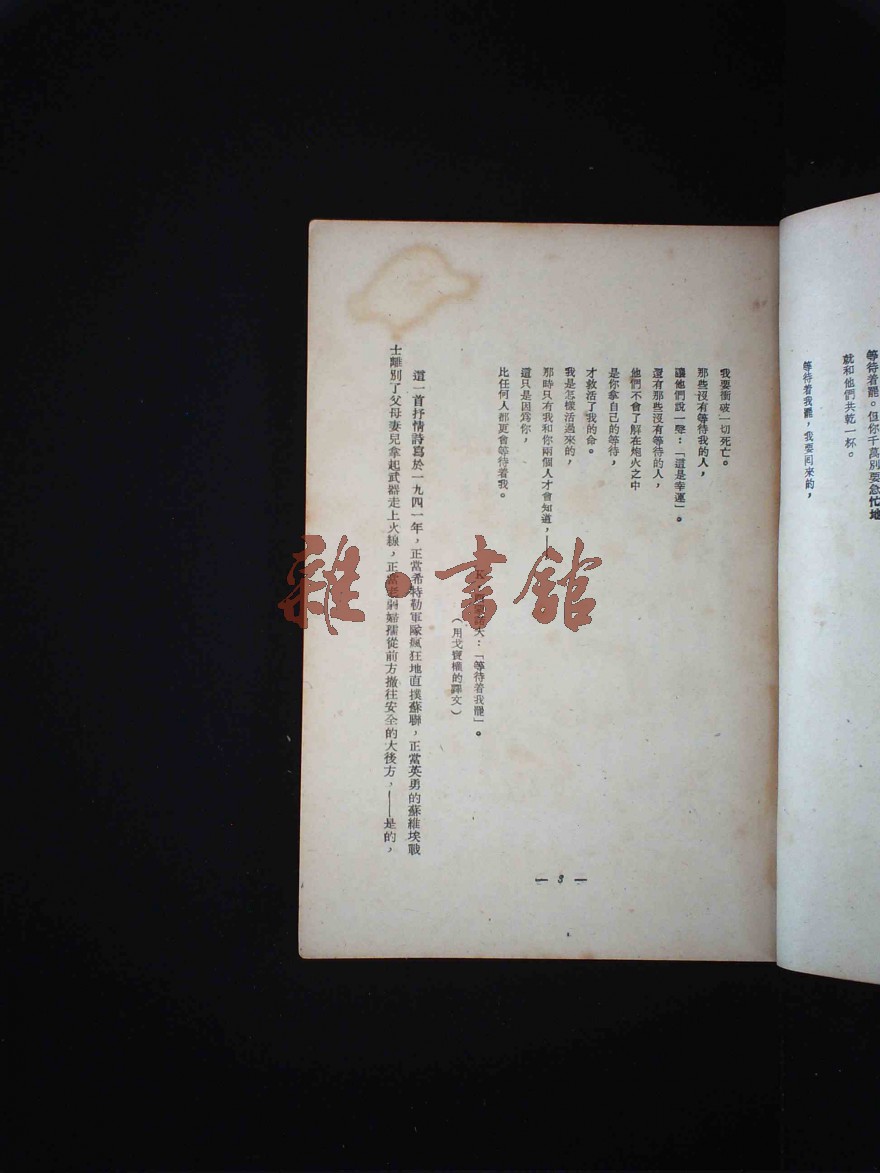 等待着罷。但你千萬別要急忙地
就和他們共乾一杯。
等待着我罷,我要囘來的,
我要衝破一切死亡。
那些沒有等待我的人,
讓他們說一聲:「這是幸運」。
還有那些沒有等待的人,
他們不會了解在炮火之中
是你拿自己的等待,
才救活了我的命。
我是怎樣活過來的,
那時只有我和你兩個人才會知道,——
這只是因爲你,
比任何人都更會等待着我。
K 夫:「等待着我罷」。
(用戈寶權的譯文)
這一首抒情詩寫於一九四一年,正當希特勒軍隊瘋狂地直撲蘇聯,正當英勇的蘇維埃戰
士離別了父母妻兒拿起武器走上火線,正當老弱婦孺從前方撤往安全的大後方,——是的,
— 3 —
雜·書館